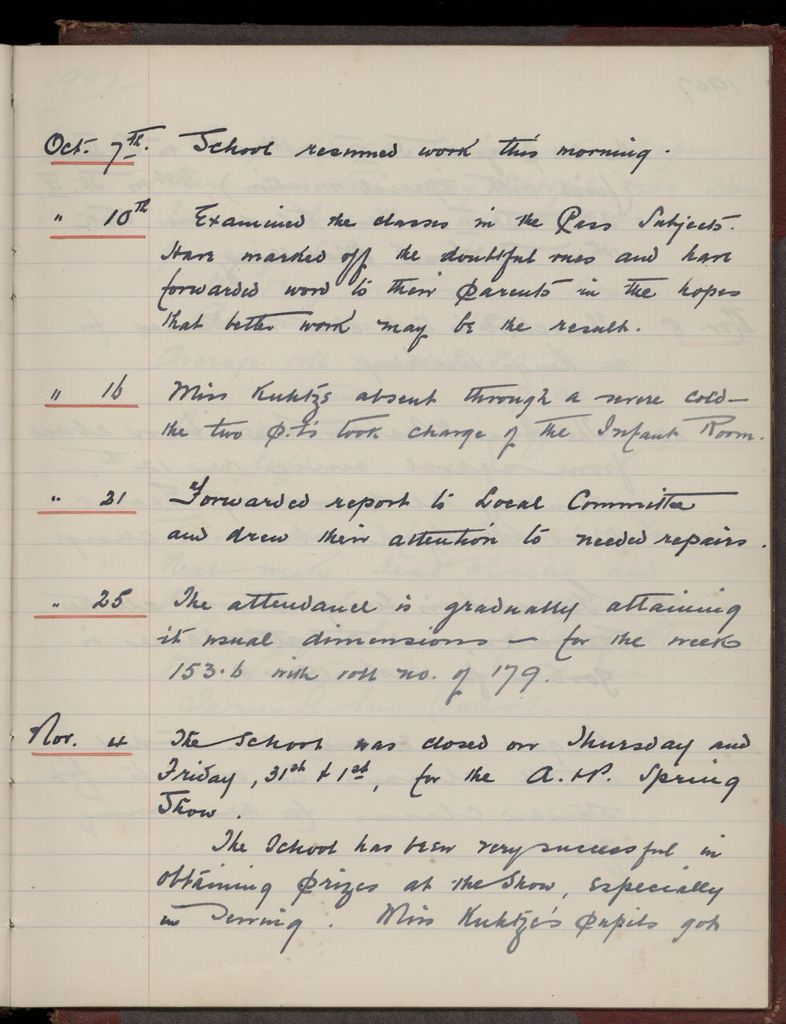 1907
Oct. 7th. School resumed work this morning.
" 10th Examined the classes in the Pass Subjects.
Have marked off the doubtful ones and have
forwarded word to their parents in the hopes
that better work may be the result.
" 16 Miss Kuhtze absent through a severe cold—
the two P.T's took charge of the Infant Room.
" 21 Forwarded report to Local Committee
and drew their attention to needed repairs.
" 25 The attendance is gradually attaining
it usual dimensions — for the week
153.6 with roll no. of 179.
Nov. 4 The School was closed on Thursday and
Friday, 31st & 1st, for the A. & P. Spring
Show.
The School has been very successful in
obtaining prizes at the Show, especially
in Sewing. Miss Kuhtze's pupils got